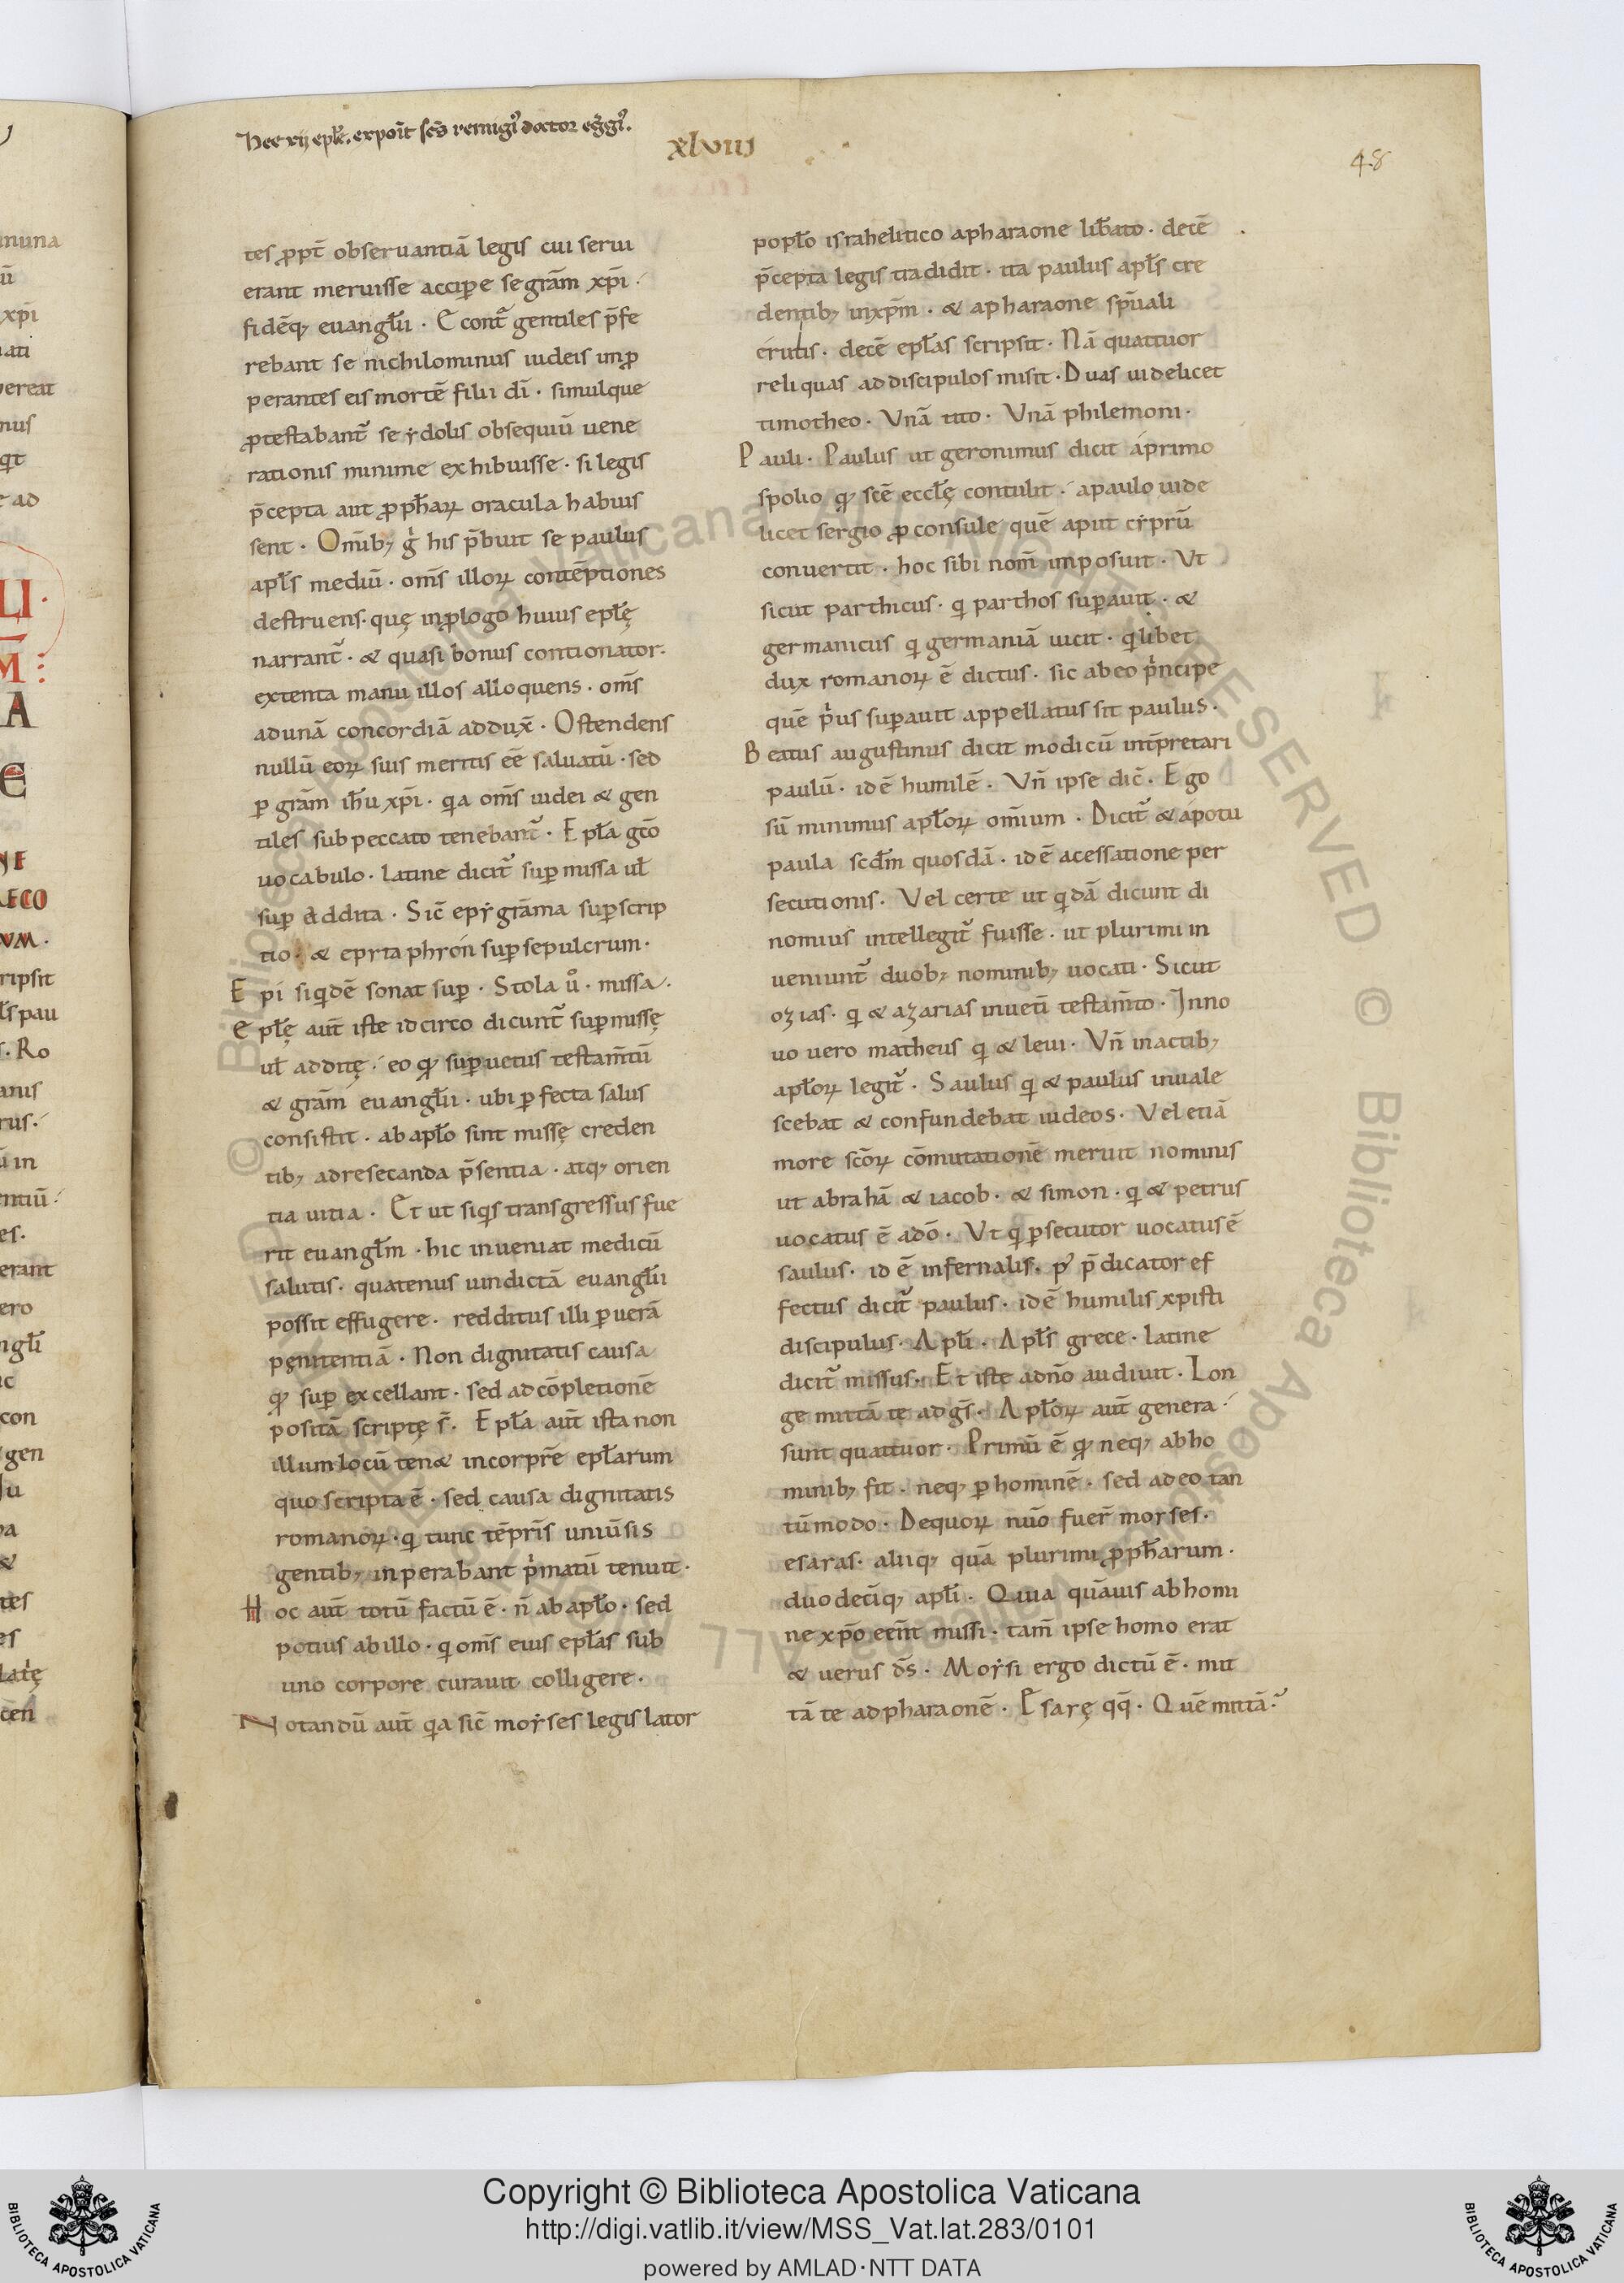 Hee xij eple. expoit scs remigi doctor egrgi.
xlviij
48
tes ppt̄ obseruantiā legis cui serui
erant meruisse accipe se grām xp̄i
fidēq; euanglii · E contᷓ gentiles p̄fe
rebant se nichilominus iudeis imp
perantes eis mortē filii dī · simulque
ptestabant᷑ se ẏdolis obsequiū uene
rationis minime exhibuisse · si legis
p̄cepta aut pphaꝝ oracula habuis
sent · Om̄ib; g̊ his p̄buit se paulus
apl̄s mediū · om̄s illoꝝ contēptiones
destruens · quę inplogo huius eplę
narrant᷑ · & quasi bonus contionator·
extenta manu illos alloquens · om̄s
adunā concordiā addux̄ · Ostendens
nullū eoꝝ suis meritis eē saluatū · sed
p grām ih̄u xp̄i · qa om̄s iudei & gen
tiles sub peccato tenebant᷑ · Epl̄a gc̄o
uocabulo · latine dicit᷑ sup missa ul̄
sup addita · Sic̄ epẏgrāma supscrip
tio · & epitaphion sup sepulcrum ·
Epi siqdē sonat sup · Stola ů · missa ·
Eplę aut̄ iste idcirco dicunt᷑ supmissę
ul̄ additę · eo qđ sup uetus testam̄tū
& grām euanglii · ubi pfecta salus
consistit · ab apl̄o sint missę creden
tib; adresecanda p̄sentia · atq; orien
tia uitia · Et ut siqs transgressus fue
rit euangl̄m · hic inueniat medicū
salutis · quatenus uindictā euanglii
possit effugere · redditus illi puerā
pęnitentiā · Non dignitatis causa
qđ sup excellant · sed adcōpletionē
positā scriptę s̄ · Epl̄a aut̄ ista non
illum locū ten& incorpr̄e epl̄arum
quo scripta ē · sed causa dignitatis
romanoꝝ · q tunc tēpris uniūsis
gentib; inperabant pͥmatū tenuit ·
Hoc aut̄ totū factū ē · n̄ ab apl̄o · sed
potius ab illo · q om̄s eius epl̄as sub
uno corpore curauit colligere ·
Notandū aut̄ qa sic̄ moẏses legis lator
popl̄o israhelitico apharaone lib̄ato · decē
p̄cepta legis tradidit · ita paulus apl̄s cre
dentib; inxp̄m · & apharaone sp̄uali
erutis · decē epl̄as scripsit · Nā quattuor
reliquas addiscipulos misit · Duas uidelicet
timotheo · Vnā tito · Vnā philemoni ·
Pauli · Paulus ut geronimus dicit áprimo
spolio qđ scē ecclę contulit · apaulo uide
licet sergio pconsule quē aput cẏprū
conuertit · hoc sibi nom̄ imposuit · Vt
sicut parthicus · q parthos supauit · &
germanicus q germaniā uicit · qlibet
dux romanoꝝ ē dictus · sic abeo pͥncipe
quē pͥus supauit appellatus sit paulus ·
Beatus augustinus dicit modicū int̄pretari
paulū · id ē humilē · Vn̄ ipse dic̄ · Ego
sū minimus apl̄oꝝ omīum · Dicit᷑ & ápotu
paula scd̄m quosdā · id ē acessatione per
secutionis · Vel certe ut qdā dicunt di
nomius intellegit᷑ fuisse · ut plurimi in
ueniunt᷑ duob; nominib; uocati · Sicut
ozias · q & azarias inueti testam̄to · Inno
uo uero matheus q & leui · Vn̄ inactib;
apl̄oꝝ legit᷑ · Saulus q & paulus inuale
scebat & confundebat iudeos · Vel etiā
more sc̄oꝝ cōmutationē meruit nominis
ut abrahā & iacob · & simon · q & petrus
uocatus ē adō · Vt q psecutor uocatus ē
saulus · id ē infernalis · pꝰ p̄dicator ef
fectus dicit᷑ paulus · id ē humilis xpisti
discipulus · Apl̄i · Apl̄s grece · latine
dicit᷑ missus · Et iste adn̄o audiuit · Lon
ge mittā te adgs̄ · Apl̄oꝝ aut̄ genera
sunt quattuor · Primū ē qđ neq; abho
minib; fit · neq; p hominē · sed adeo tan
tūmodo · Dequoꝝ nūo fuer̄ moẏses ·
esaias · aliiq; quā plurimi pph̄arum ·
duodecīq; apl̄i · Quia quāuis abhomi
ne xp̄o eēnt missi · tam̄ ipse homo erat
& uerus d̄s · Moẏsi ergo dictū ē · mit
tā te adpharaonē · Esaię qq̄ · Quē mittā·
Copyright © Biblioteca Apostolica Vaticana
http://digi.vatlib.it/view/MSS_Vat.lat.283/0101
powered by AMLAD·NTT DATA
BIBLIOTECA APOSTOLICA VATICANA
BIBLIOTECA APOSTOLICA VATICANA